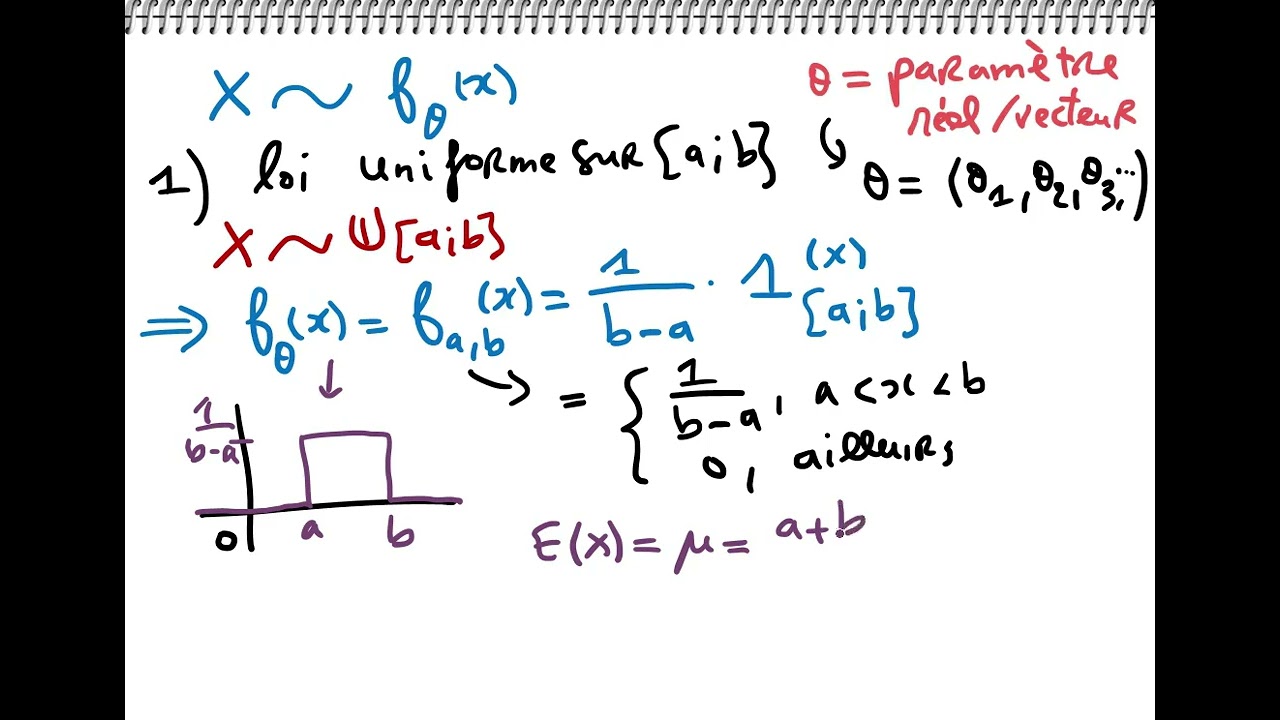 X ~ f_θ(x)
θ = paramètre
réel/vecteur
1) loi uniforme sur [a;b]
θ = (θ_1, θ_2, θ_3, ...)
X ~ U[a;b]
⇒ f_θ(x) = f_{a,b}(x) = 1/(b-a) · 1_{[a;b]}(x)
= { 1/(b-a), a < x < b
0, ailleurs
1/(b-a)
0 a b
E(X) = μ = a+b